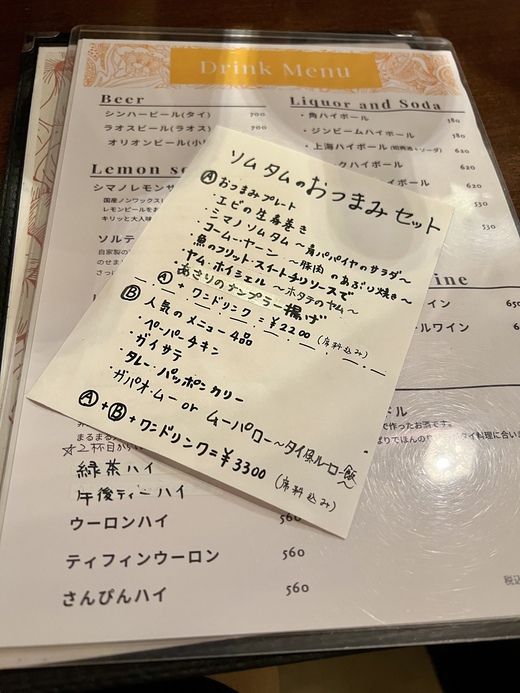 Drink Menu
Beer
シンハービール(タイ) 700
ラオスビール(ラオス) 700
オリオンビール(小
Lemon so
シマノレモンサ
国産ノンワックス
レモンビールをお
キリッと大人味
ソルテ
自家製の
のせまし
Liquor and Soda
・角ハイボール 580
・ジンビームハイボール 580
・上海ハイボール(紹興酒+ソーダ) 620
クハイボール 620
イボール
530
530
ine
イン 650
ルワイン
ドル
で作ったお酒です。
まるまる
☆2杯目から
緑茶ハイ
午後ティーハイ
ウーロンハイ 560
ティフィンウーロン 560
さんぴんハイ 560
税込
ソムタムのおつまみセット
Ⓐおつまみプレート
・エビの生春巻き
・シマノソムタム〜青パパイヤのサラダ〜
・コームーヤーン 〜豚肉のあぶり焼き〜
・魚のフリット・スイートチリソースで
・ヤム・ホイシェル 〜ホタテのヤム〜
・あさりのナンプラー揚げ
Ⓐ+ワンドリンク=¥2200(席料込み)
Ⓑ人気のメニュー4品
・ペーパーチキン
・ガイサテ
・タレー・パッポンカリー
・ガパオ・ムー or ムーパロー〜タイ風ルーロー飯〜
Ⓐ+Ⓑ+ワンドリンク=¥3300
(席料込み)